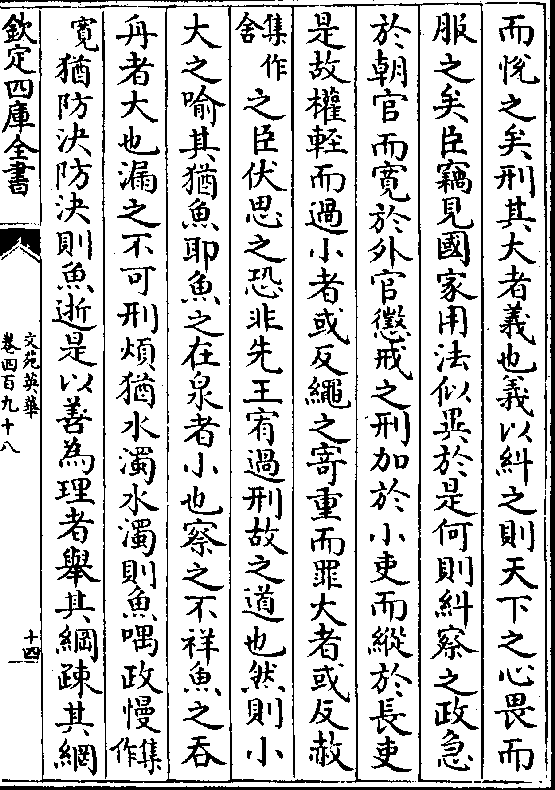 而悅之矣刑其大者義也義以糾之則天下之心畏而
服之矣臣竊見國家用法似異於是何則糾察之政急
於朝官而寛於外官懲戒之刑加於小吏而縱於長吏
是故權輕而過小者或反繩之寄重而罪大者或反赦
集作舍之臣伏思之恐非先王宥過刑故之道也然則小
大之喻其猶魚耶魚之在泉者小也察之不祥魚之吞
舟者大也漏之不可刑煩猶水濁水濁則魚喁政慢集作
寛猶防決防決則魚逝是以善為理者舉其綱疎其網
欽定四庫全書
文苑英華
卷四百九十八
十四